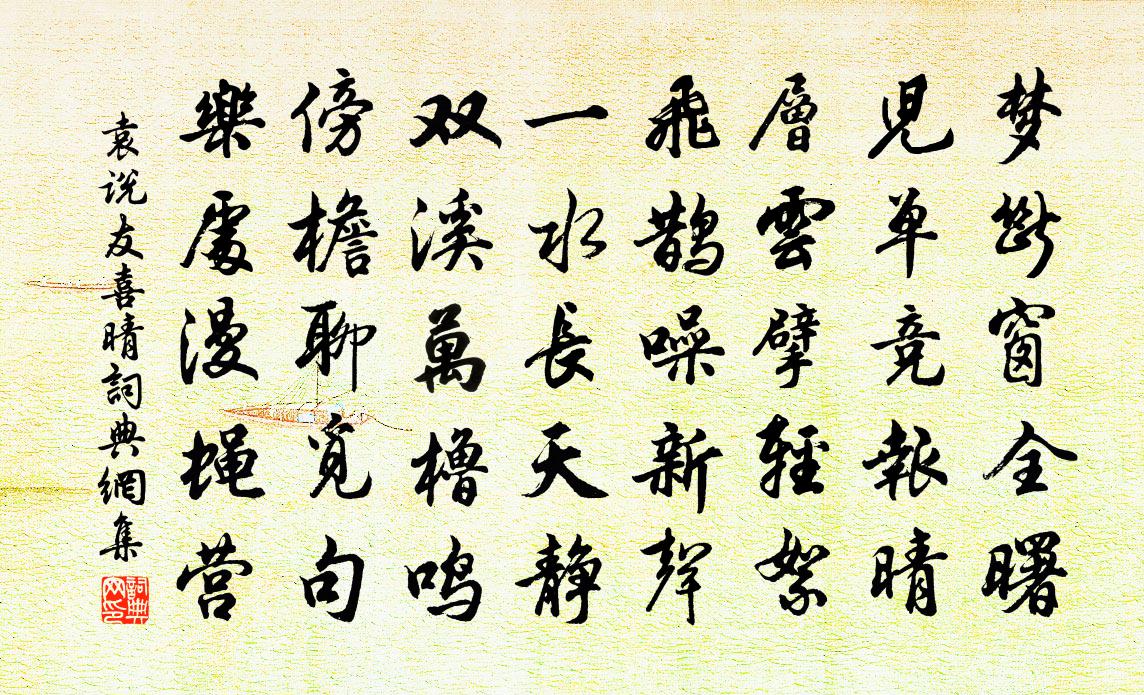 梦断窗全曙
児单竞報晴
層雲擘輕絮
飛鹊噪新聲
一水長天静
双溪萬櫓鸣
傍檐聊覓句
樂處漫蝇营
袁说友喜晴詞典網集
詞典网印